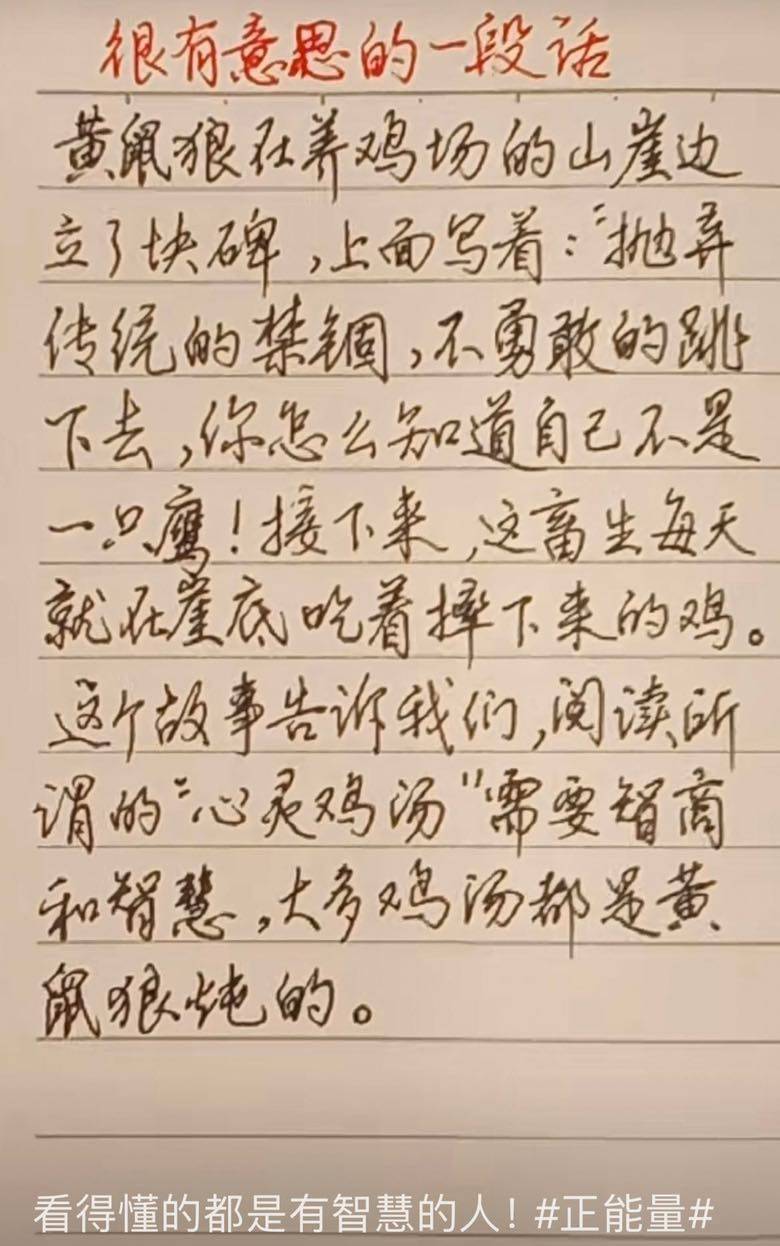 很有意思的一段话
黄鼠狼在养鸡场的山崖边
立了块碑,上面写着:“抛弃
传统的禁锢,不勇敢的跳
下去,你怎么知道自己不是
一只鹰!接下来,这畜生每天
就在崖底吃着摔下来的鸡。
这个故事告诉我们,阅读所
谓的“心灵鸡汤”需要智商
和智慧,大多鸡汤都是黄
鼠狼炖的。
看得懂的都是有智慧的人!#正能量#